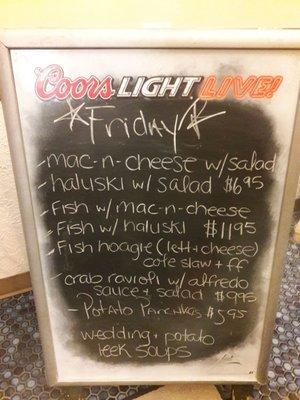 Coors LIGHT LIVE!
Friday
- mac-n-cheese w/salad
- haluski w/ salad $6.95
- Fish w/ mac-n-cheese
- Fish w/ haluski $11.95
- Fish hoagie (lett+cheese)
cole slaw + ff
crab ravioli w/ alfredo
sauce + salad $9.95
- Potato Pancakes $5.95
wedding + potato
leek soups